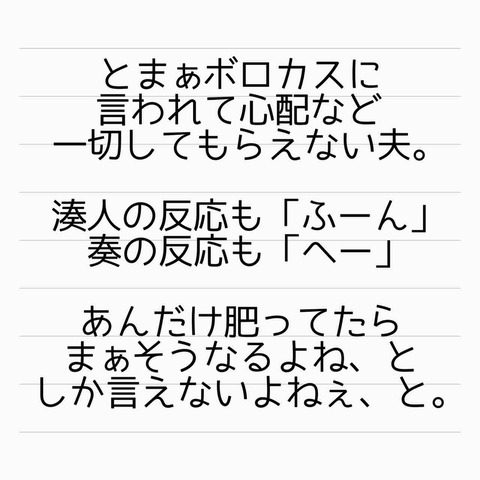 とまぁボロカスに
言われて心配など
一切してもらえない夫。
湊人の反応も「ふーん」
奏の反応も「へー」
あんだけ肥ってたら
まぁそうなるよね、と
しか言えないよねぇ、と。